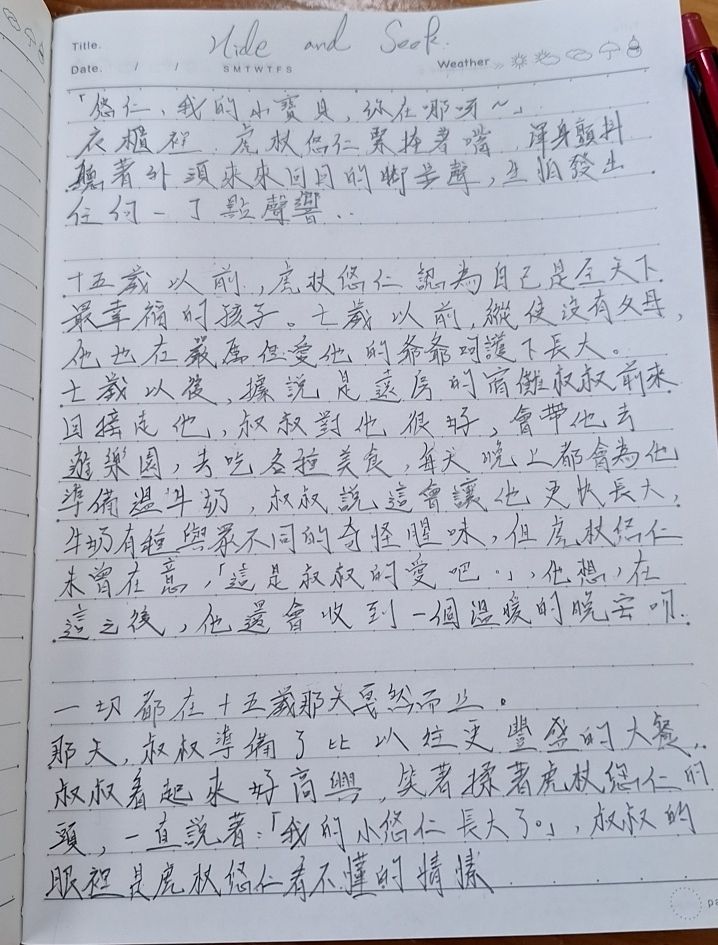 Title. Hide and Seek.
Date. / / S M T W T F S Weather
「悠仁，我的小寶貝，你在哪呀～」
衣櫃裡，虎杖悠仁緊捂著嘴，渾身顫抖
聽著外頭來來回回的腳步聲，生怕發出
任何一丁點聲響..
十五歲以前，虎杖悠仁認為自己是全天下
最幸福的孩子。七歲以前，縱使沒有父母，
他也在嚴厲但愛他的爺爺呵護下長大。
七歲以後，據說是遠房的宿儺叔叔前來
回接走他，叔叔對他很好，會帶他去
遊樂園，去吃各種美食，每天晚上都會為他
準備溫牛奶，叔叔說這會讓他更快長大，
牛奶有種與眾不同的奇怪腥味，但虎杖悠仁
未曾在意，「這是叔叔的愛吧。」，他想，在
這之後，他還會收到一個溫暖的晚安吻.
一切都在十五歲那天戛然而止。
那天，叔叔準備了比以往更豐盛的大餐..
叔叔看起來好高興，笑著揉著虎杖悠仁的
頭，一直說著：「我的小悠仁長大了。」，叔叔的
眼裡是虎杖悠仁看不懂的情愫